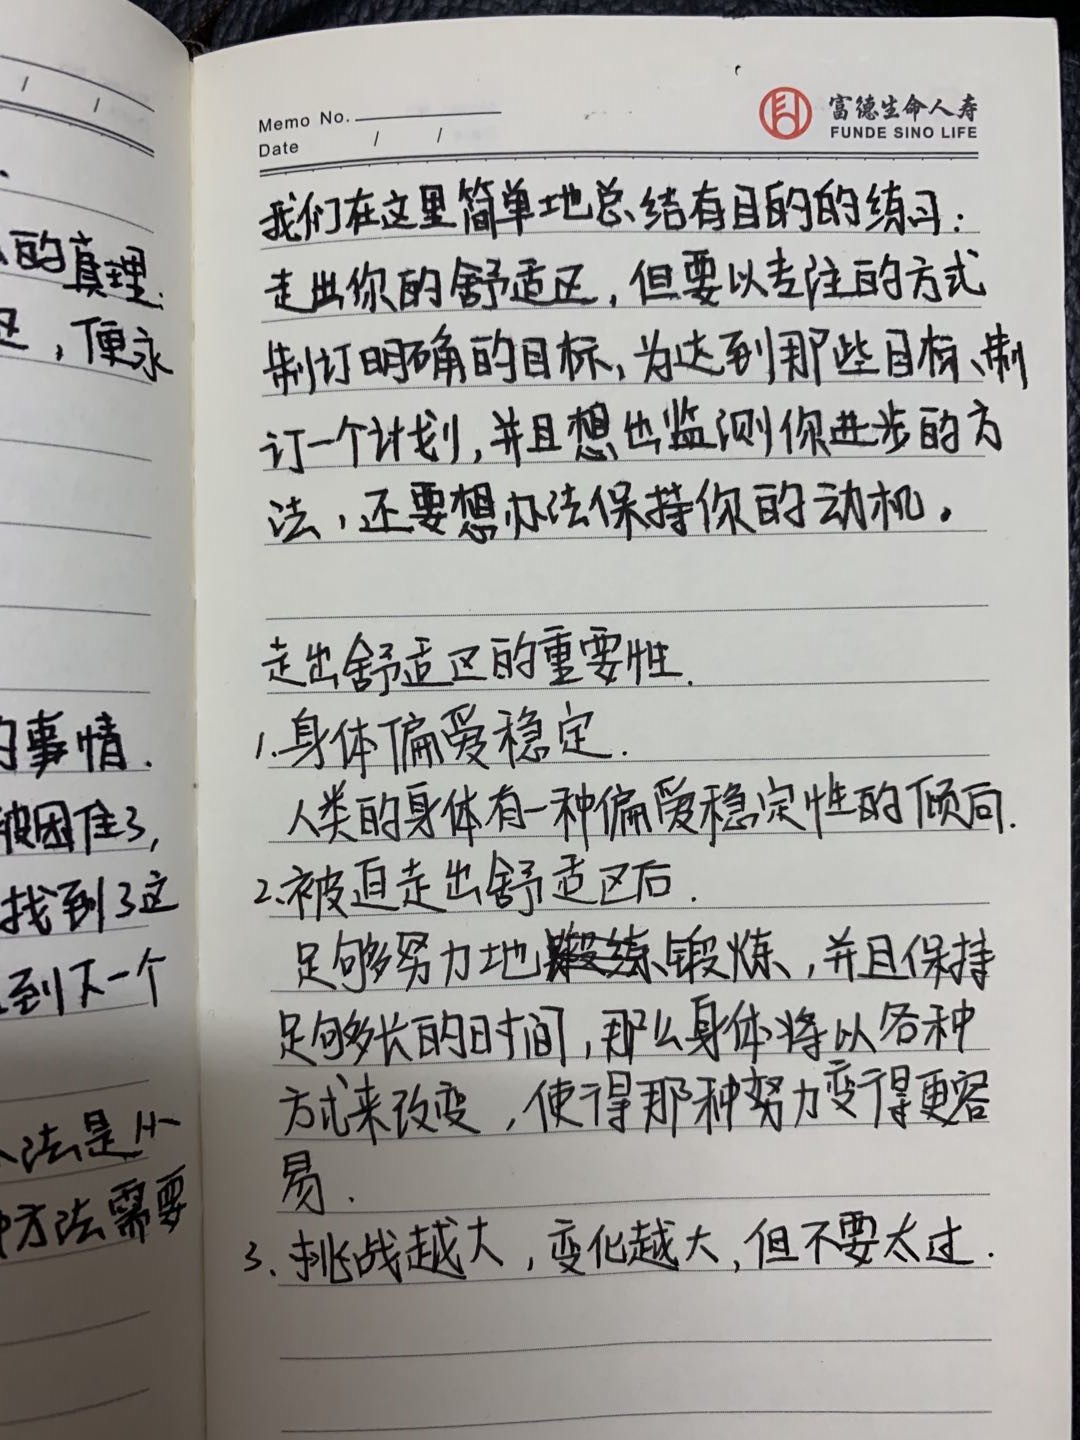 的真理.
区，便永
的事情.
被困住了,
找到了这
到下一个
法是从
方法需要
Memo No.
Date / /
富德生命人寿
FUNDE SINO LIFE
我们在这里简单地总结有目的的练习:
走出你的舒适区,但要以专注的方式
制订明确的目标,为达到那些目标、制
订一个计划,并且想出监测你进步的方
法,还要想办法保持你的动机。
走出舒适区的重要性.
1.身体偏爱稳定.
人类的身体有一种偏爱稳定性的倾向.
2.被迫走出舒适区后.
足够努力地锻炼,并且保持
足够多长的时间,那么身体将以各种
方式来改变,使得那种努力变得更容
易.
3、挑战越大,变化越大,但不要太过.